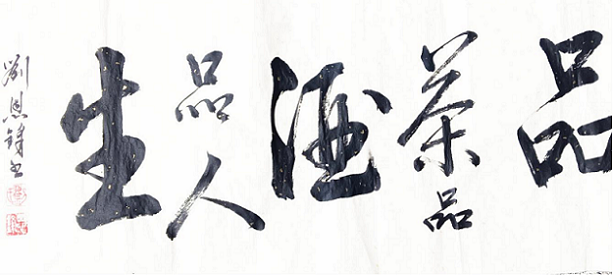 品
茶品
酒
品人
生
劉恩鋒书